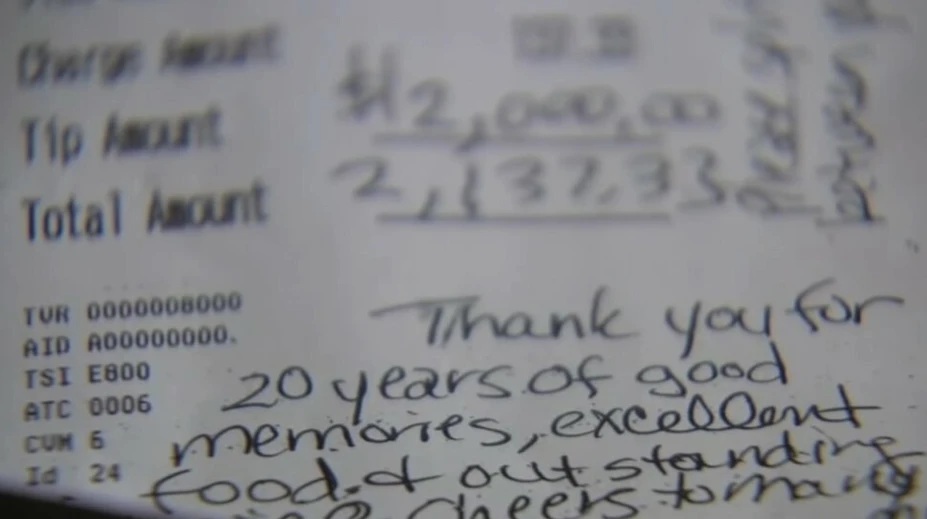 Charge Amount
Tip Amount $2,000.00
Total Amount 2,137.33
TVR 0000008000
AID A00000000.
TSI E800
ATC 0006
CVM 6
Id 24
Thank you for
20 years of good
memories, excellent
food, & outstanding
cheers to many